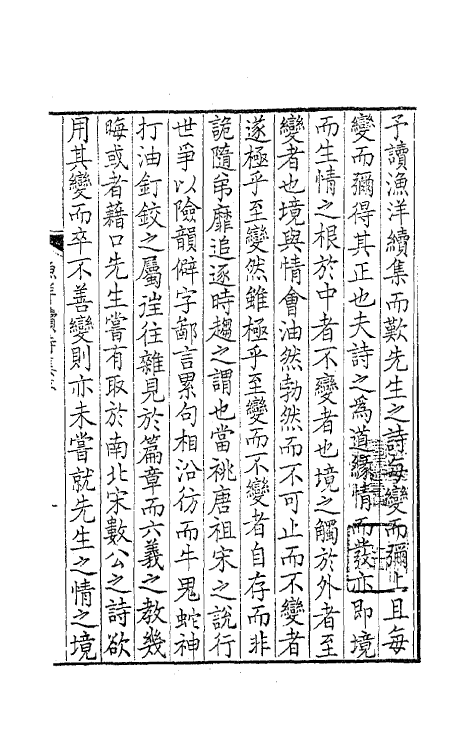 予讀漁洋續集而歎先生之詩每變而彌上且每
變而彌得其正也夫詩之為道緣情而發亦即境
而生情之根於中者不變者也境之觸於外者至
變者也境與情會油然勃然而不可止而不變者
遂極乎至變然雖極乎至變而不變者自存而非
詭隨弟靡追逐時趨之謂也當祧唐祖宋之說行
世爭以險韻僻字鄙言累句相沿彷而牛鬼蛇神
打油釘鉸之屬淫往雜見於篇章而六義之教幾
晦或者藉口先生嘗有取於南北宋數公之詩欲
用其變而卒不善變則亦未嘗就先生之情之境